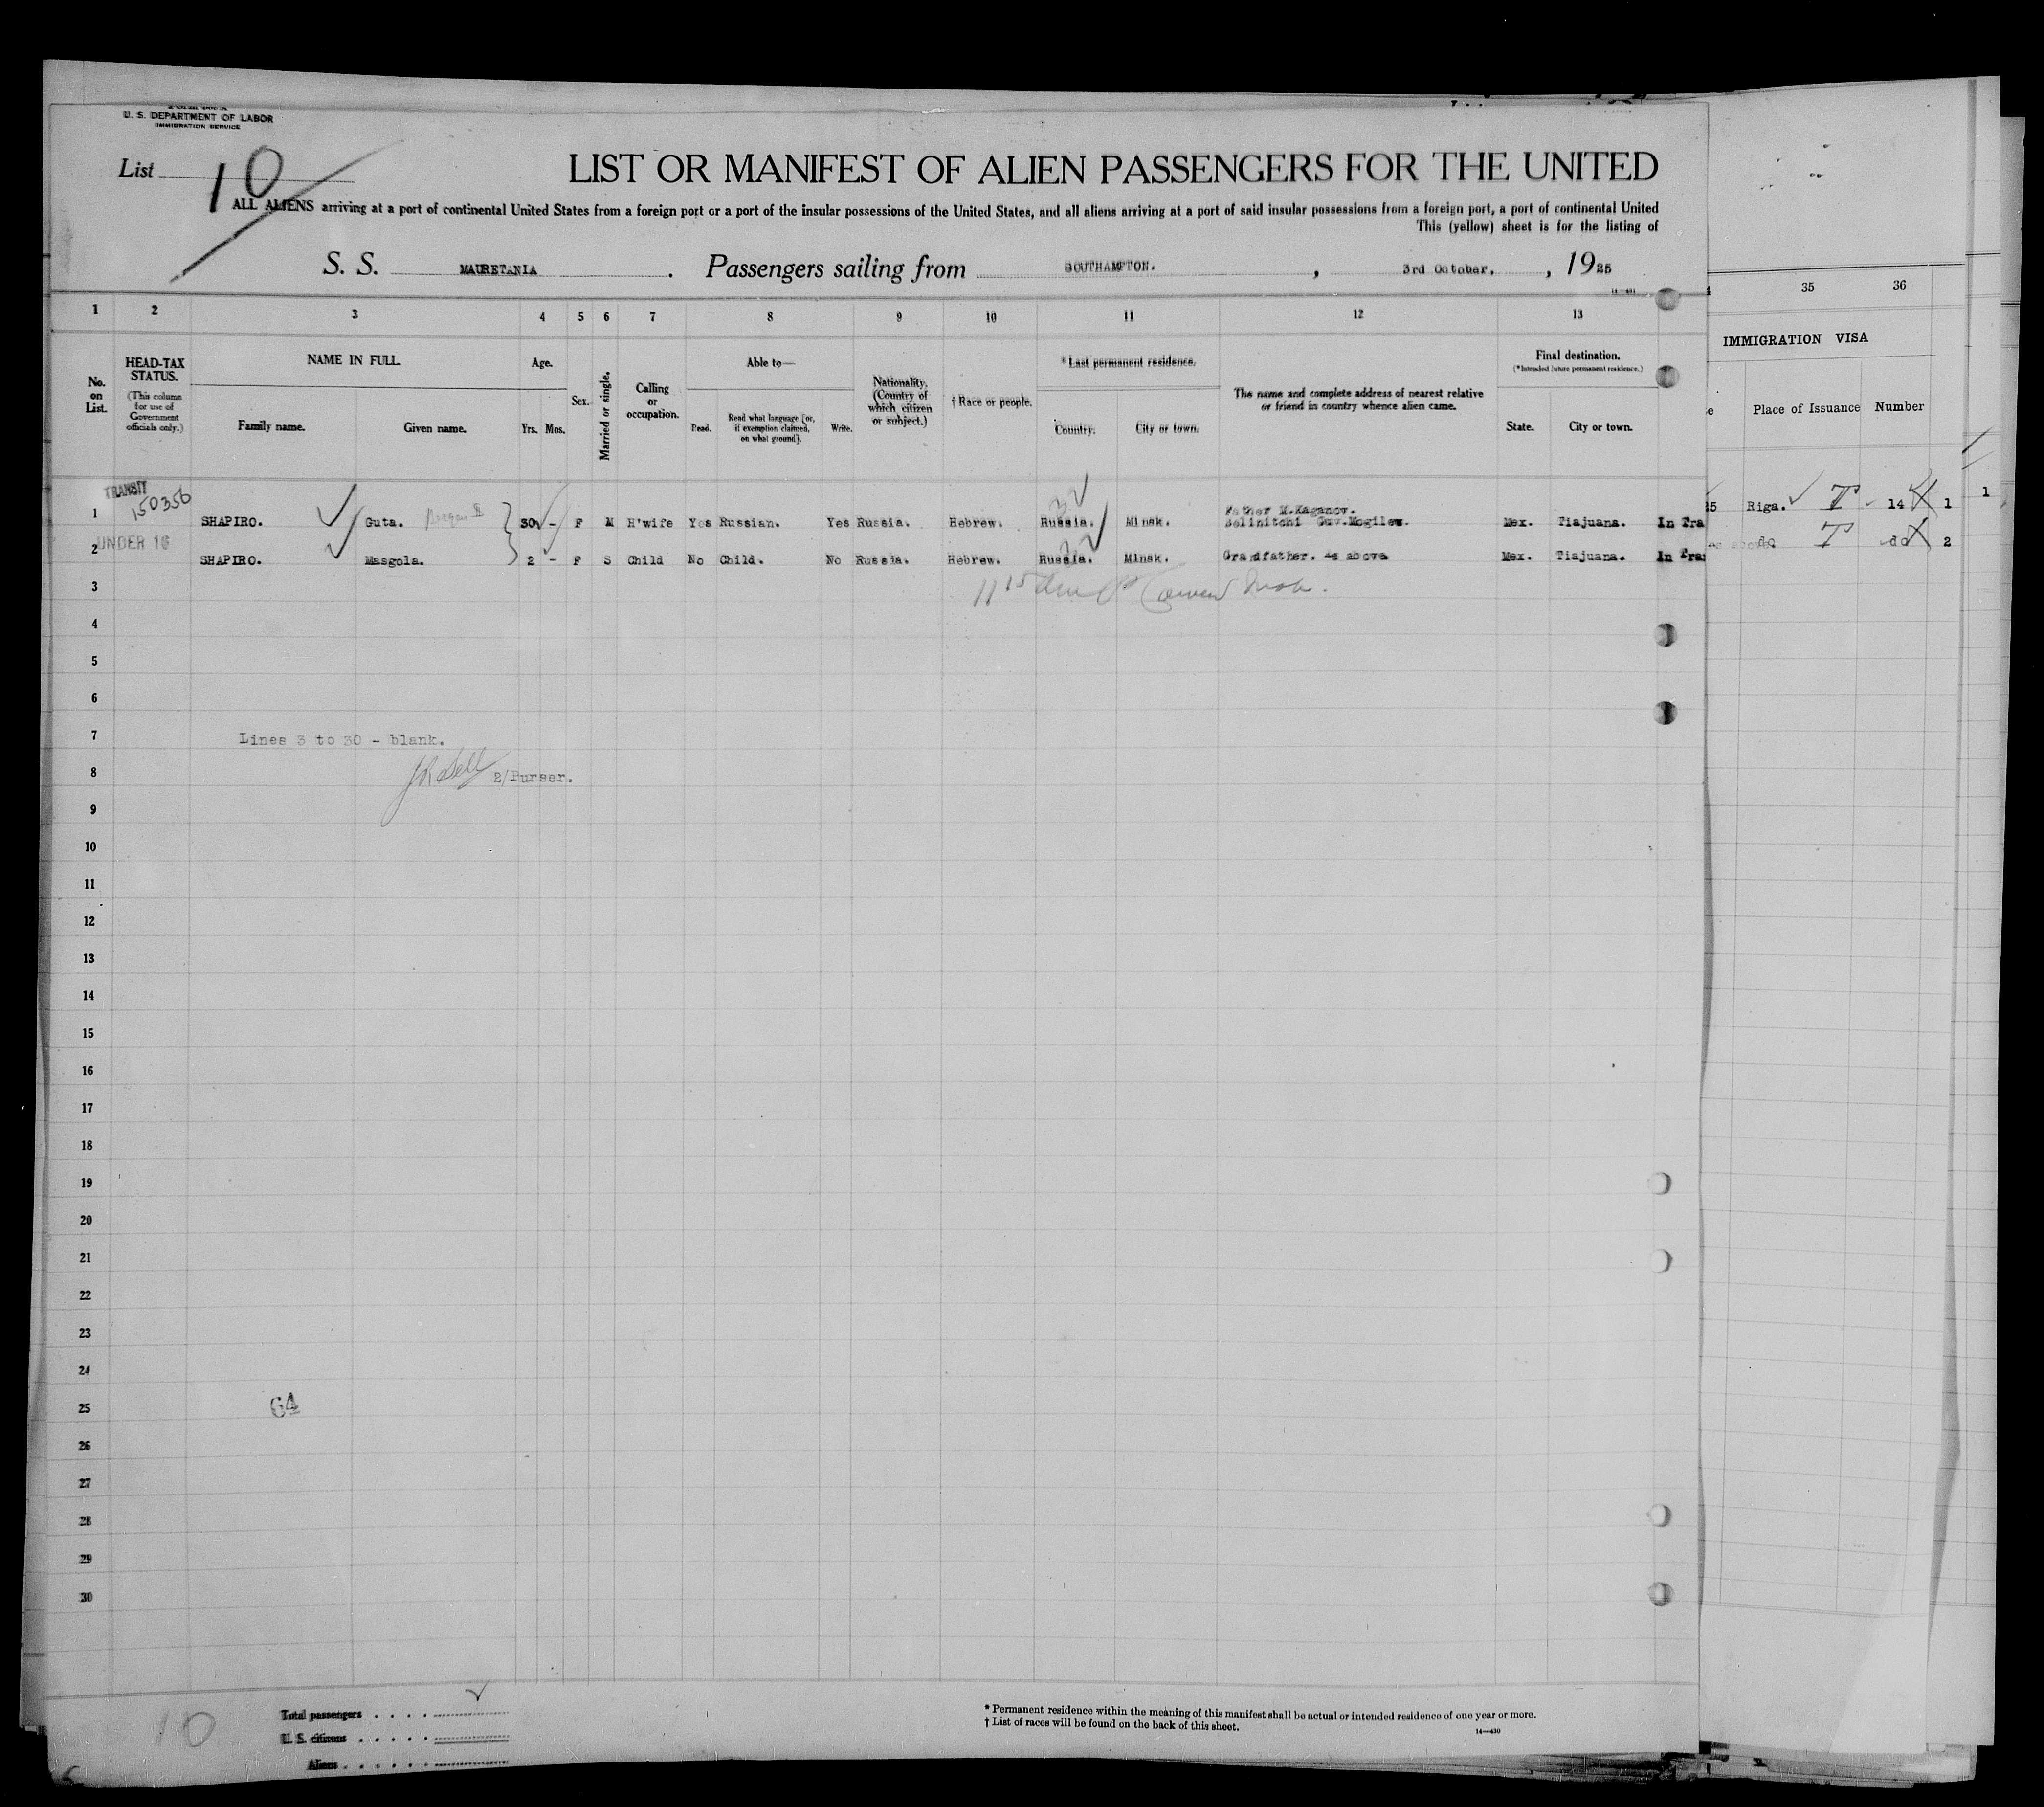 U. S. DEPARTMENT OF LABOR
IMMIGRATION SERVICE
List 10
LIST OR MANIFEST OF ALIEN PASSENGERS FOR THE UNITED
ALL ALIENS arriving at a port of continental United States from a foreign port or a port of the insular possessions of the United States, and all aliens arriving at a port of said insular possessions from a foreign port, a port of continental United
This (yellow) sheet is for the listing of
S. S. MAURETANIA . Passengers sailing from SOUTHAMPTON. , 3rd October, , 1925
1 2 3 4 5 6 7 8 9 10 11 12 13
35 36
No. on List.
HEAD-TAX STATUS.
(This column for use of Government officials only.)
NAME IN FULL.
Family name. Given name.
Age.
Yrs. Mos.
Sex.
Married or single.
Calling or occupation.
Able to—
Read. Read what language [or, if exemption claimed, on what ground]. Write.
Nationality. (Country of which citizen or subject.)
† Race or people.
* Last permanent residence.
Country. City or town.
The name and complete address of nearest relative or friend in country whence alien came.
Final destination.
(*Intended future permanent residence.)
State. City or town.
IMMIGRATION VISA
Place of Issuance Number
TRANSIT
150356
Father M.Kaganov.
1 SHAPIRO. Guta. 30 - F M H'wife Yes Russian. Yes Russia. Hebrew. Russia. Minsk. Belinitchi Guv.Mogilew. Mex. Tiajuana. In Tra
25 Riga. T - 14 1
1
UNDER 16
2 SHAPIRO. Masgola. 2 - F S Child No Child. No Russia. Hebrew. Russia. Minsk. Grandfather. As above Mex. Tiajuana. In Tra
as above do T do 2
3
4
5
6
7 Lines 3 to 30 - blank.
8 2/Purser.
9
10
11
12
13
14
15
16
17
18
19
20
21
22
23
24
25 64
26
27
28
29
30
10
Total passengers
U. S. citizens
Aliens
* Permanent residence within the meaning of this manifest shall be actual or intended residence of one year or more.
† List of races will be found on the back of this sheet.
14—430